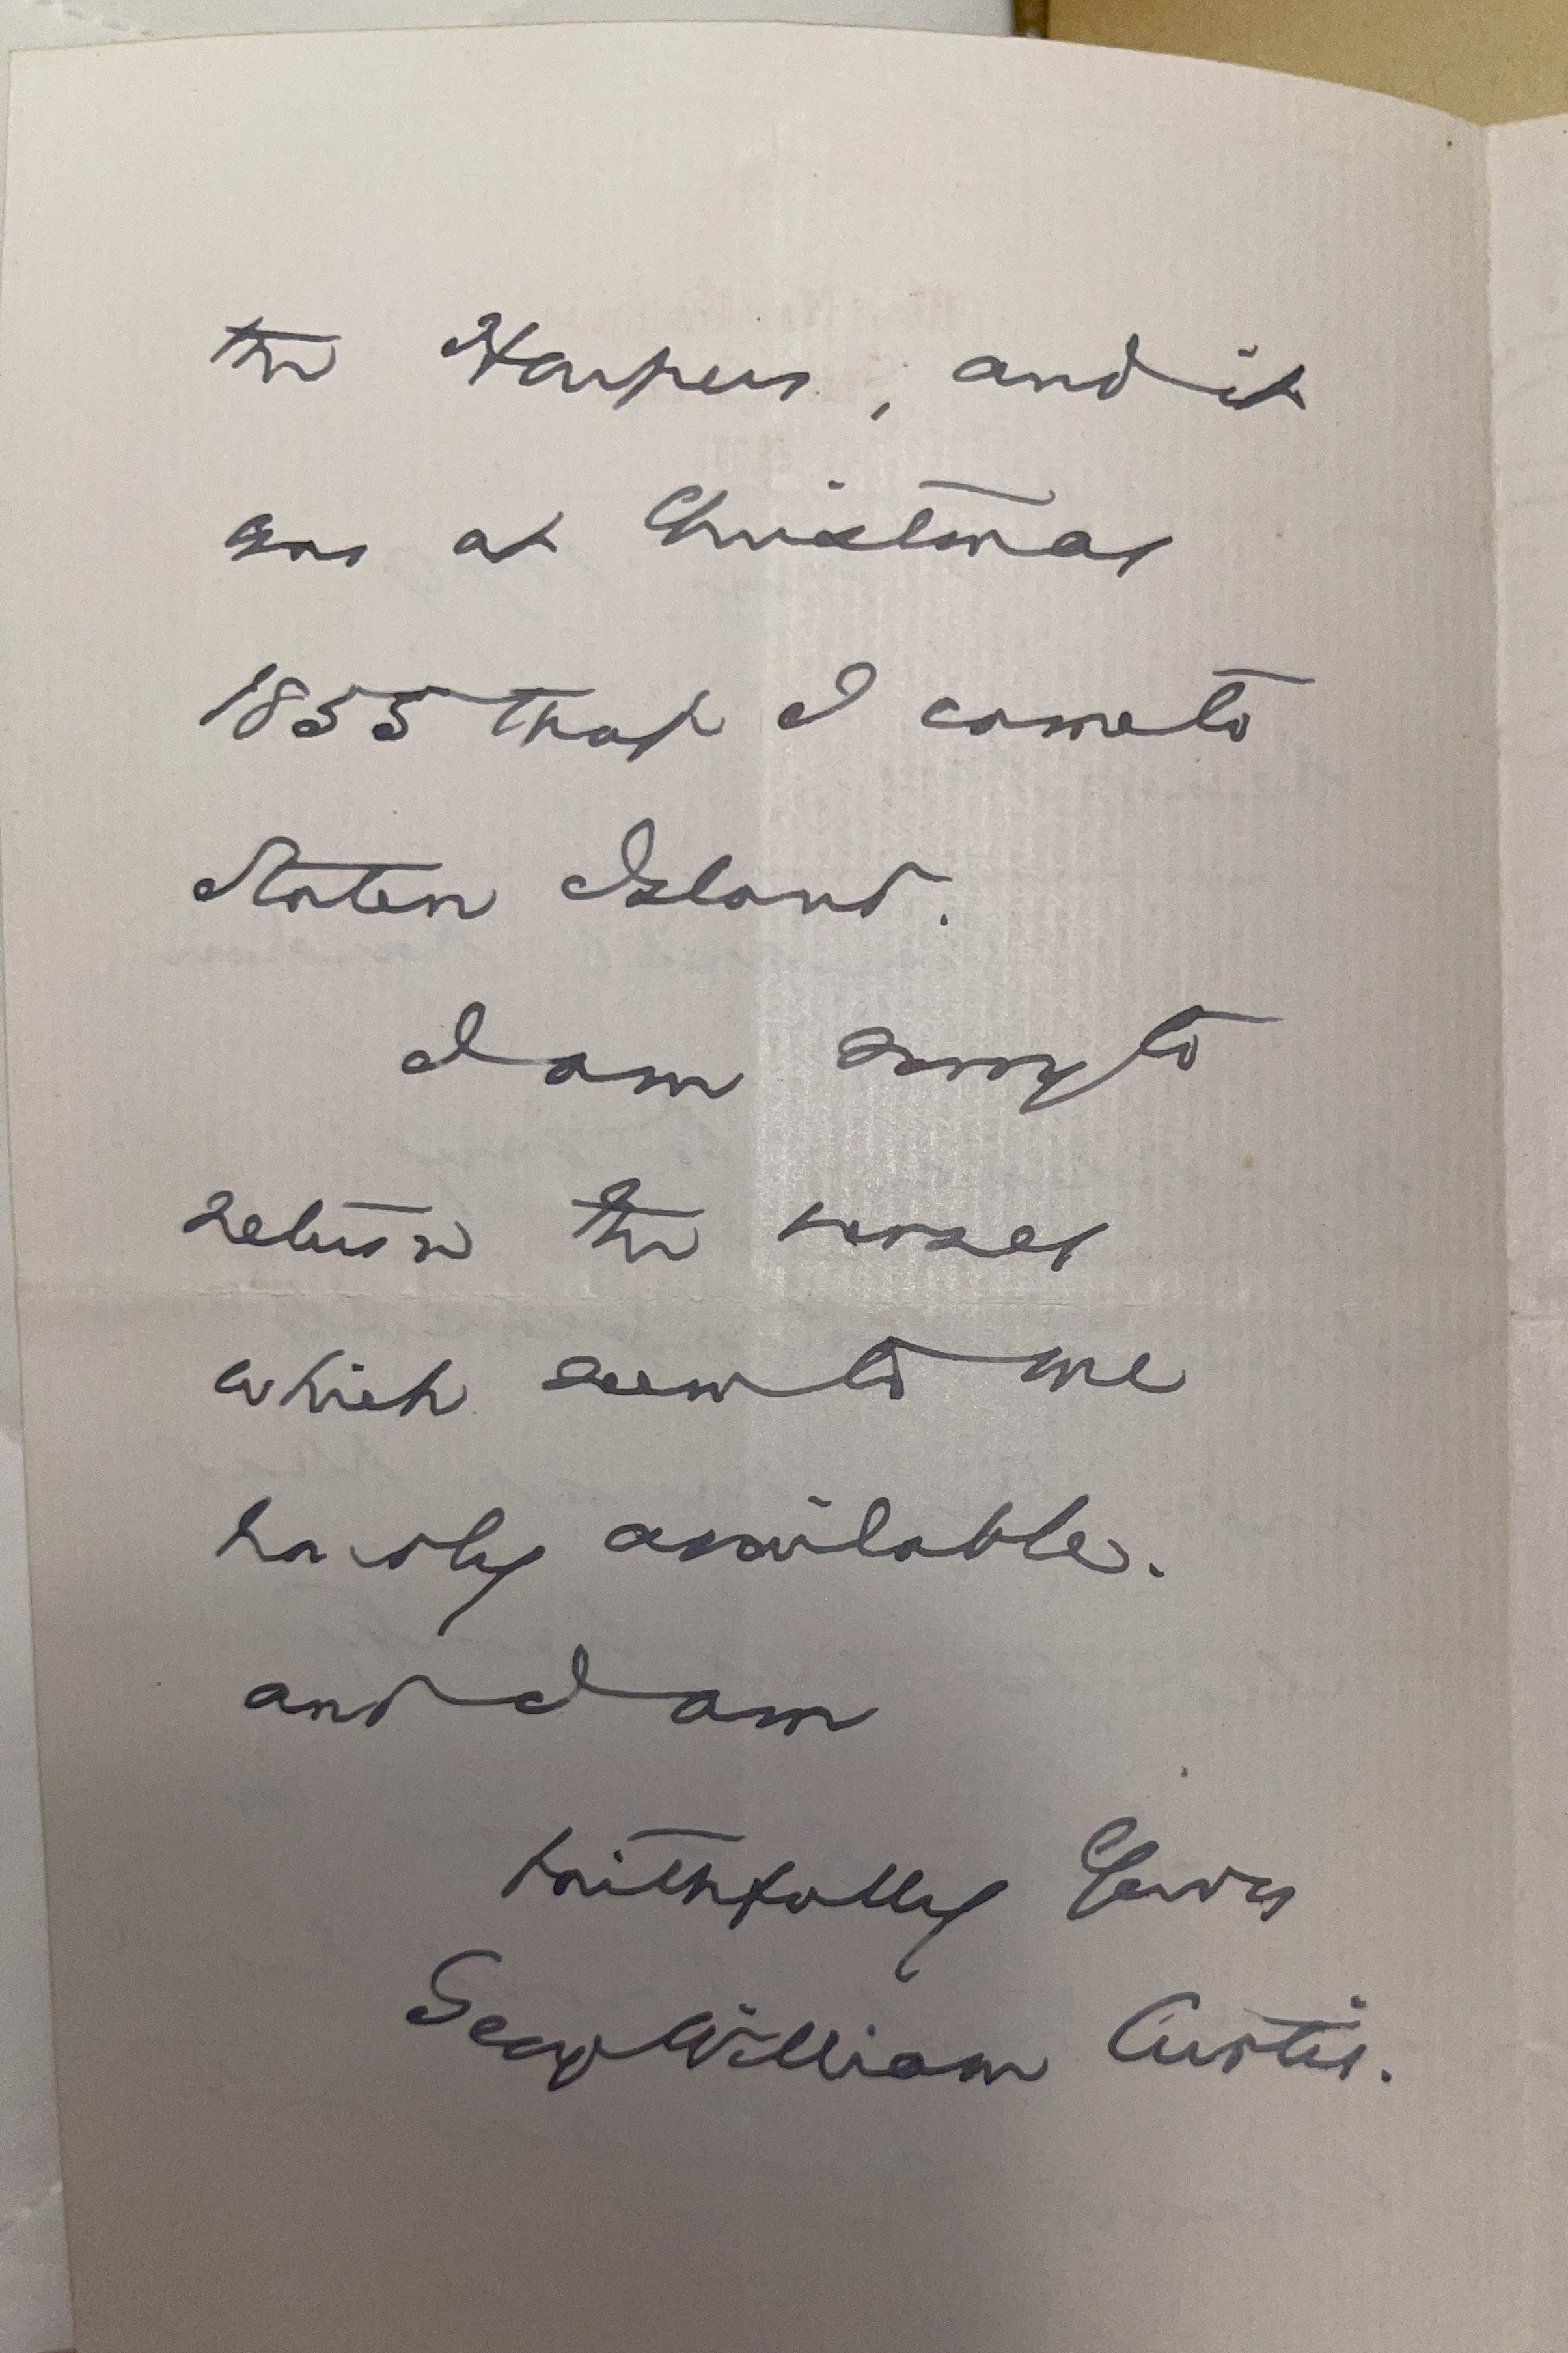 the Harpers, and it
was at Christmas
1855 that I came to
Staten Island.
I am sorry to
return the verses
which seem to me
hardly available.
and I am
faithfully Yours
George William Curtis.